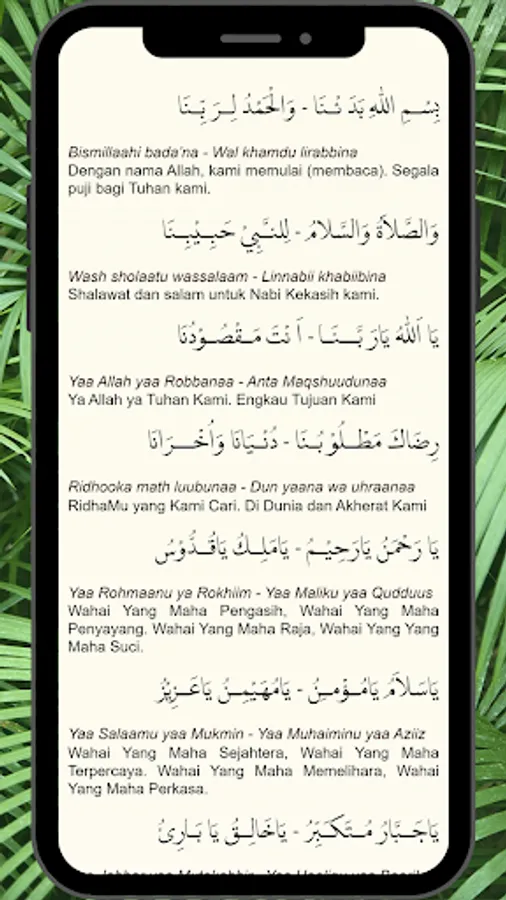 بِسْمِ اللهِ بَدَئْنَا - وَالْحَمْدُ لِرَبِّنَا
Bismillaahi bada'na - Wal khamdu lirabbina
Dengan nama Allah, kami memulai (membaca). Segala
puji bagi Tuhan kami.
وَالصَّلاَةُ وَالسَّلاَمُ - لِلنَّبِيْ حَبِيْبِنَا
Wash sholaatu wassalaam - Linnabii khabiibina
Shalawat dan salam untuk Nabi Kekasih kami.
يَا اَللهُ يَارَبَّنَا - اَنْتَ مَقْصُوْدُنَا
Yaa Allah yaa Robbanaa - Anta Maqshuudunaa
Ya Allah ya Tuhan Kami. Engkau Tujuan Kami
رِضَاكَ مَطْلُوْبُنَا - دُنْيَانَا وَأُخْرَانَا
Ridhooka math luubunaa - Dun yaana wa uhraanaa
RidhaMu yang Kami Cari. Di Dunia dan Akherat Kami
يَا رَحْمَنُ يَارَحِيْمُ - يَامَلِكُ يَاقُدُّوْسُ
Yaa Rohmaanu ya Rokhiim - Yaa Maliku yaa Qudduus
Wahai Yang Maha Pengasih, Wahai Yang Maha
Penyayang. Wahai Yang Maha Raja, Wahai Yang Yang
Maha Suci.
يَاسَلاَمُ يَامُؤْمِنُ - يَامُهَيْمِنُ يَاعَزِيْزُ
Yaa Salaamu yaa Mukmin - Yaa Muhaiminu yaa Aziiz
Wahai Yang Maha Sejahtera, Wahai Yang Maha
Terpercaya. Wahai Yang Maha Memelihara, Wahai
Yang Maha Perkasa.
يَاجَبَّارُ مُتَكَبِّرُ - يَاخَالِقُ يَا بَارِئُ